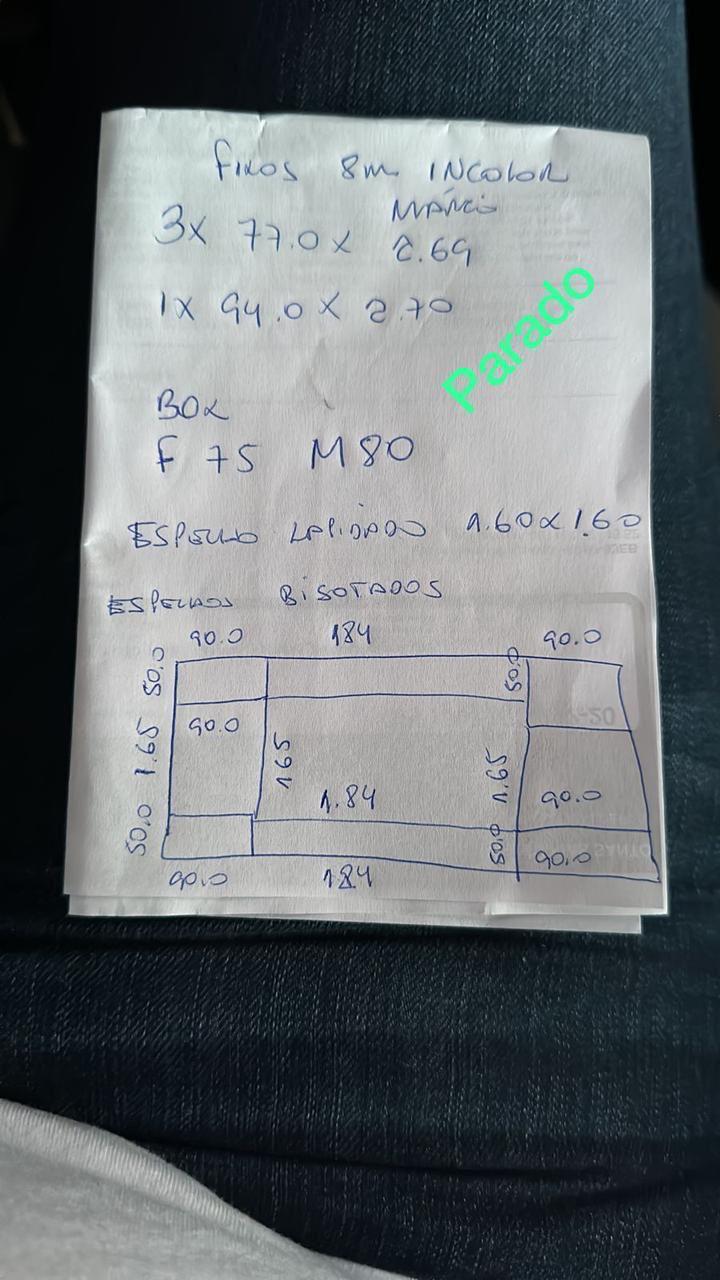 FIXOS 8m INCOLOR
MÁRCIO
3x 77.0 x 2.69
1x 94.0 x 2.70
Parado
BOX
F 75 M 80
ESPELHO LAPIDADO 1.60x1.60
ESPELHOS BISOTADOS
90.0 184 90.0
50.0 50.0
90.0
1.65 165 1.65
1.84 90.0
50.0 50.0 90.0
90.0 184